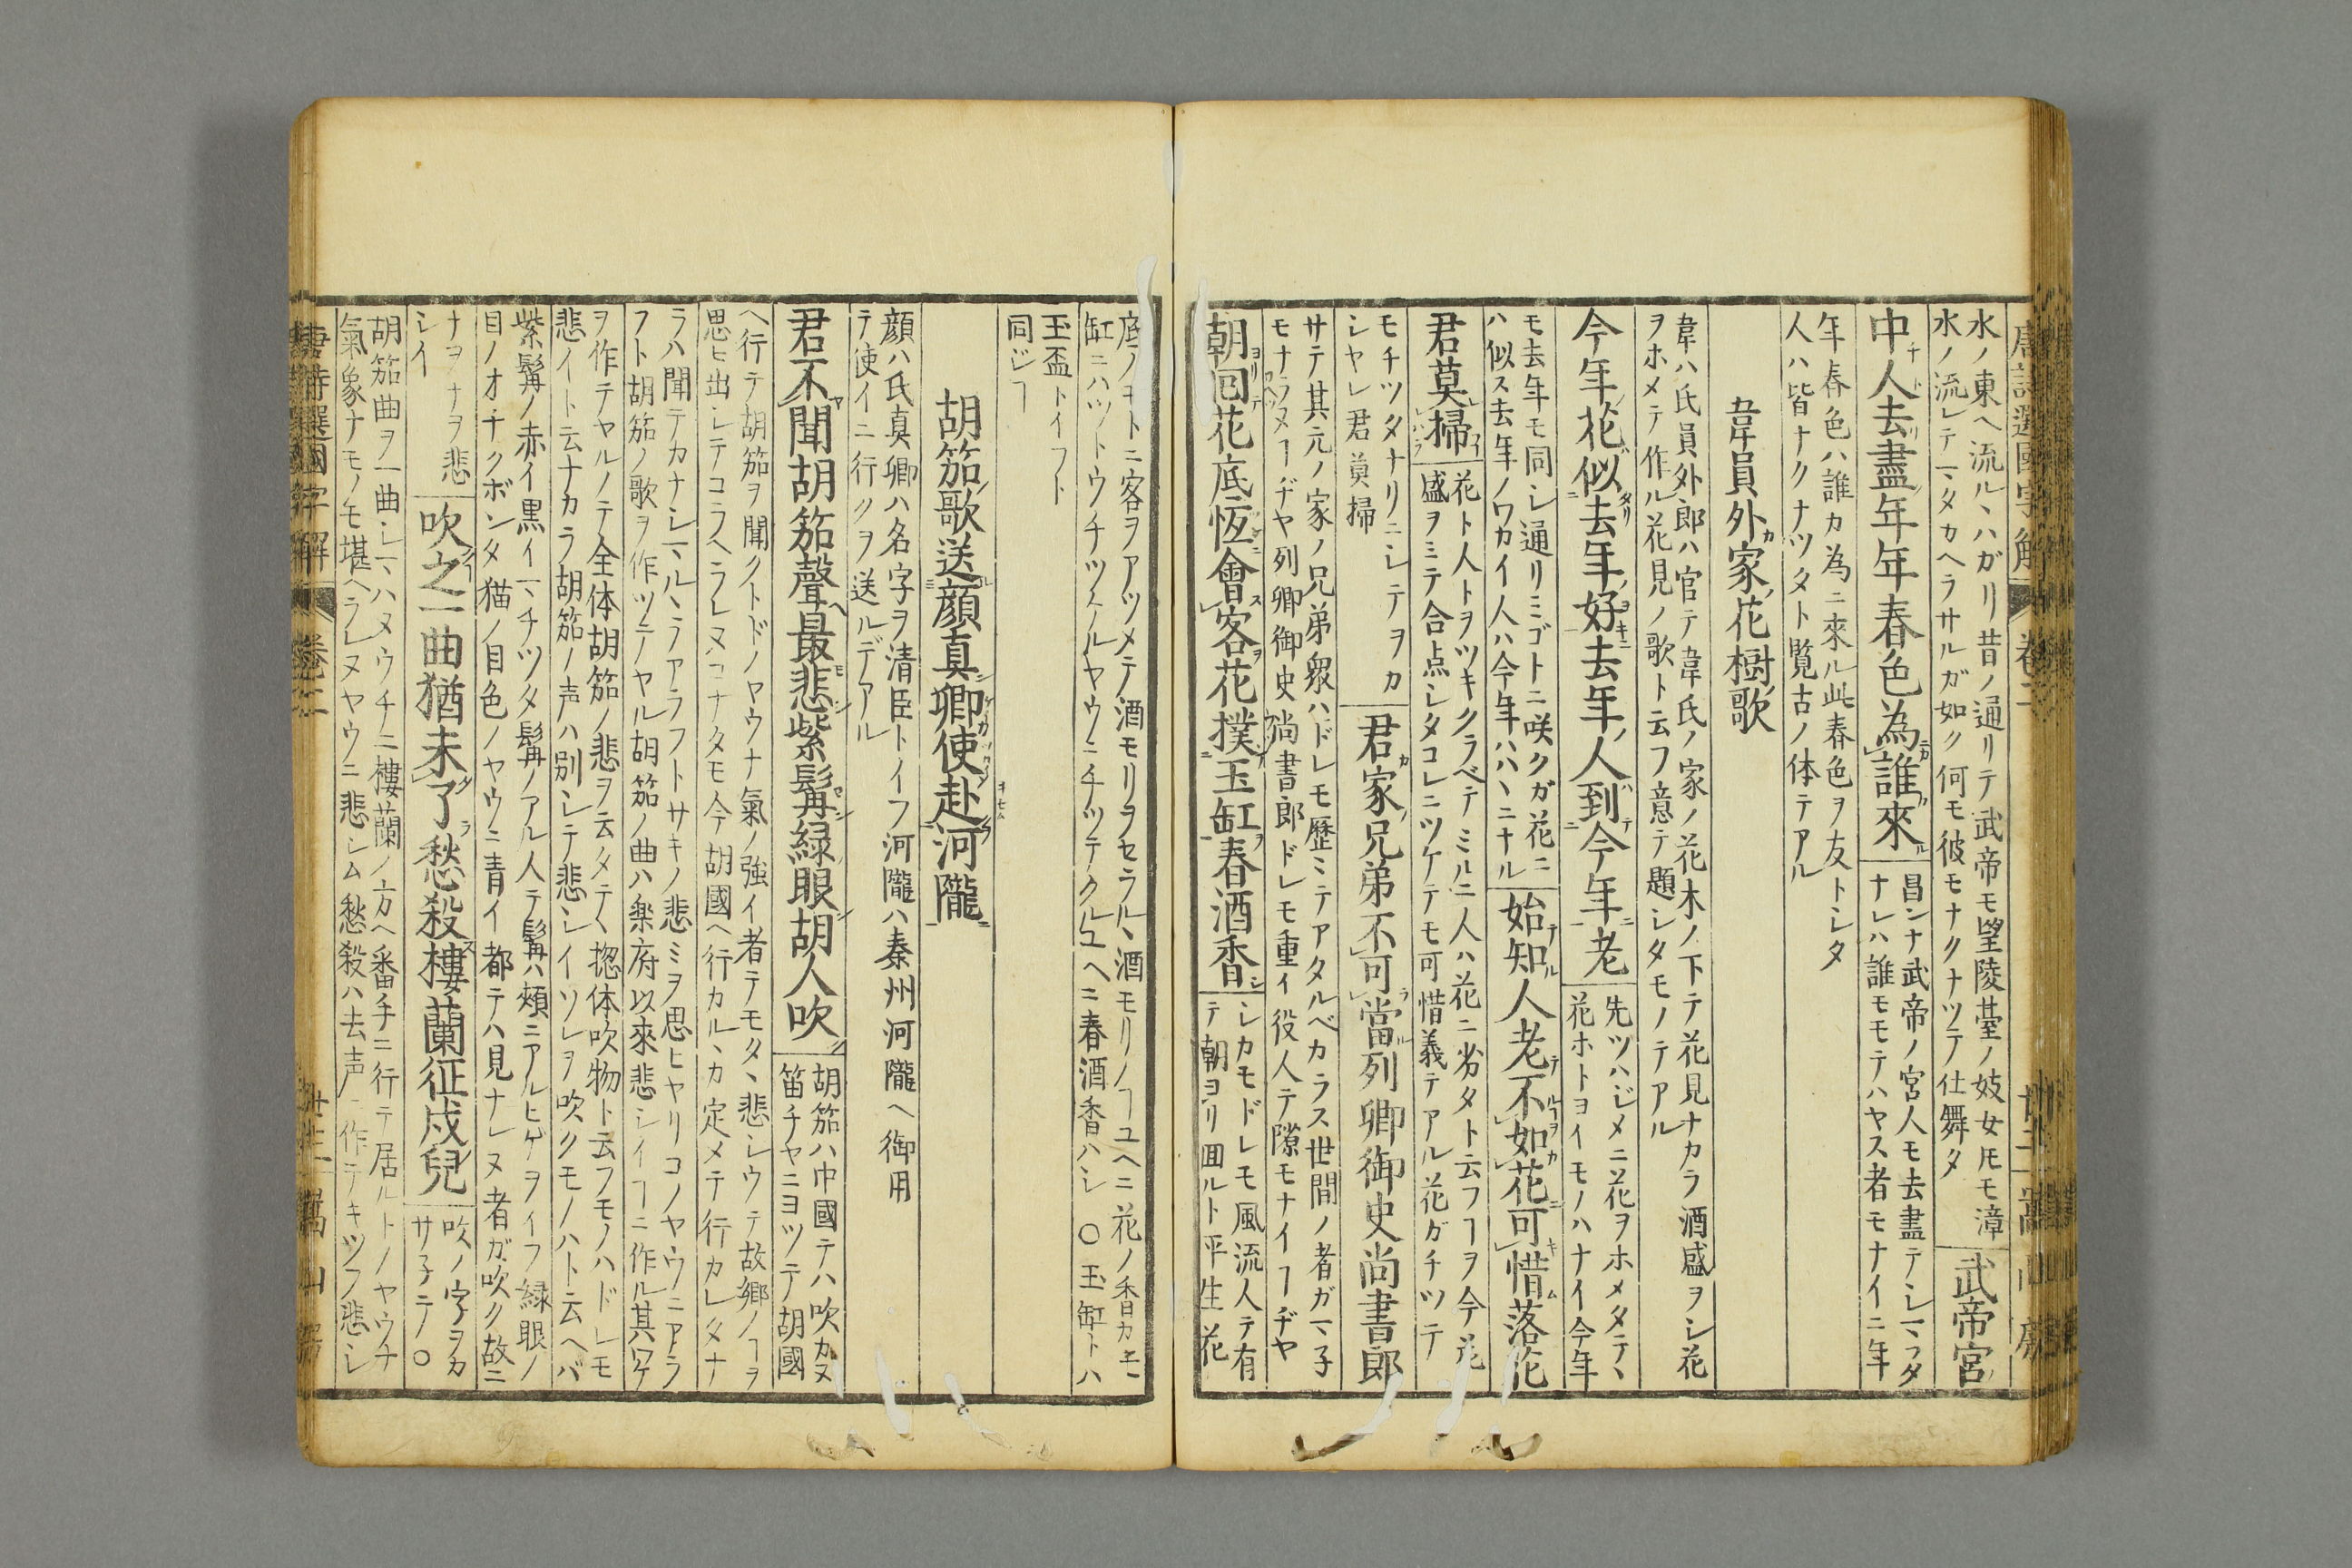 水ノ東ヘ流ルヽハガリ昔ノ通リテ武帝モ望陵䑓ノ妓女㞍モ漳
水ノ流レテ一タカヘラサルガ如ク何モ彼モナクナツテ仕舞タ
武帝宮
中人去盡年年春色為誰來
昌ンナ武帝ノ宮人モ去盡テシマフタ
ナレハ誰モモテハヤス者モナイニ年
年春色ハ誰カ為ニ來ル此春色ヲ友トシタ
人ハ皆ナクナツタト覧古ノ体テアル
韋員外家花樹歌
韋ハ氏員外郎ハ官テ韋氏ノ家ノ花木ノ下テ花見ナカラ酒盛ヲシ花
ヲホメテ作ル花見ノ歌ト云フ意テ題シタモノテアル
今年花似去年好去年人到今年老
先ツハジメニ花ヲホメタテヽ
花ホトヨイモノハナイ今年
モ去年モ同シ通リミゴトニ咲クガ花ニ
ハ似ス去年ノワカイ人ハ今年ハハヽニナル
始知人老不如花可惜落花
君莫掃
花ト人トヲツキクラベテミルニ人ハ花ニ劣タト云フヿヲ今花
盛ヲミテ合点シタコレニツケテモ可惜義テアル花ガチツテ
モチツタナリニシテヲカ
シヤレ君莫掃
君家兄弟不可當列卿御史尚書郎
サテ其元ノ家ノ兄弟衆ハドレモ歴ミテアタルベカラス世間ノ者ガマ子
モナラヌヿヂヤ列卿御史尚書郎ドレモ重イ役人テ隙モナイヿヂヤ
朝囘花底恆會客花撲玉缸春酒香
シカモドレモ風流人テ有
テ朝ヨリ囬ルト平生花
底ノモトニ客ヲアツメテ酒モリヲセラルヽ酒モリノヿユヘニ花ノ香カ
缸ニハツトウチツケルヤウニチツテクルユヘニ春酒香ハシ 〇玉缸トハ
玉盃トイフト
同ジヿ
胡笳歌送顔真卿使赴河隴
顔ハ氏真卿ハ名字ヲ清臣トイフ河隴ハ秦州河隴ヘ御用
テ使イニ行クヲ送ルデアル
君不聞胡笳聲最悲紫髯緑眼胡人吹
胡笳ハ中國テハ吹カヌ
笛チヤニヨツテ胡國
ヘ行テ胡笳ヲ聞クトドノヤウナ氣ノ強イ者テモタヽ悲シウテ故郷ノヿヲ
思ヒ出シテコラヘラレヌコナタモ今胡國ヘ行カルヽカ定メテ行カレタナ
ラハ聞テカナシマルヽラアラフトサキノ悲ミヲ思ヒヤリコノヤウニアラ
フト胡笳ノ歌ヲ作ツテヤル胡笳ノ曲ハ楽府以來悲シイヿニ作ル其ワケ
ヲ作テヤルノテ全体胡笳ノ悲ヲ云タテヽ揔体吹物ト云フモノハドレモ
悲イト云ナカラ胡笳ノ声ハ別シテ悲シイソレヲ吹クモノハト云ヘバ
紫髯ノ赤イ黒イマチツタ髯ノアル人テ髯ハ頬ニアルヒゲヲイフ緑眼ノ
目ノオチクボンタ猫ノ目色ノヤウニ青イ都テハ見ナレヌ者ガ吹ク故ニ
ナヲナヲ悲
シイ
吹之一曲猶未了愁殺樓蘭征戍兒
吹ノ字ヲカ
サ子テノ〇
胡笳曲ヲ一曲シマハヌウチニ樓蘭ノ方ヘ番手ニ行テ居ルトノヤウナ
氣象ナモノモ堪ヘラレヌヤウニ悲シム愁殺ハ去声ニ作テキツフ悲シ
唐詩選國字解 卷二
嵩山房